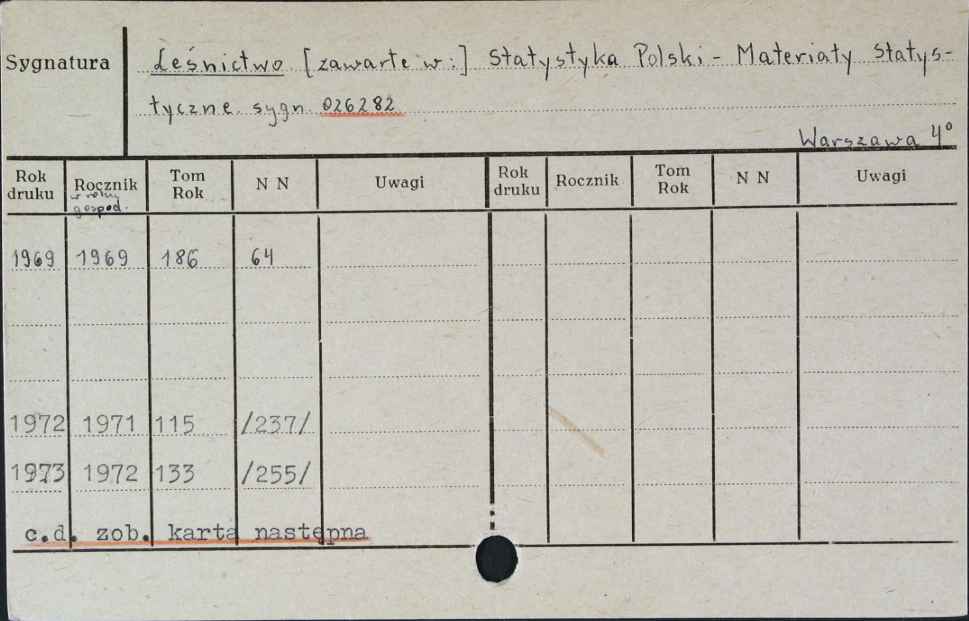 Sygnatura Leśnictwo [zawarte w:] Statystyka Polski - Materiały Statys-
tyczne sygn. 026282
Warszawa 4°
Rok druku Rocznik w roku gospod. Tom Rok N N Uwagi Rok druku Rocznik Tom Rok N N Uwagi
1969 1969 186 64
1972 1971 115 /237/
1973 1972 133 /255/
c.d. zob. karta następna